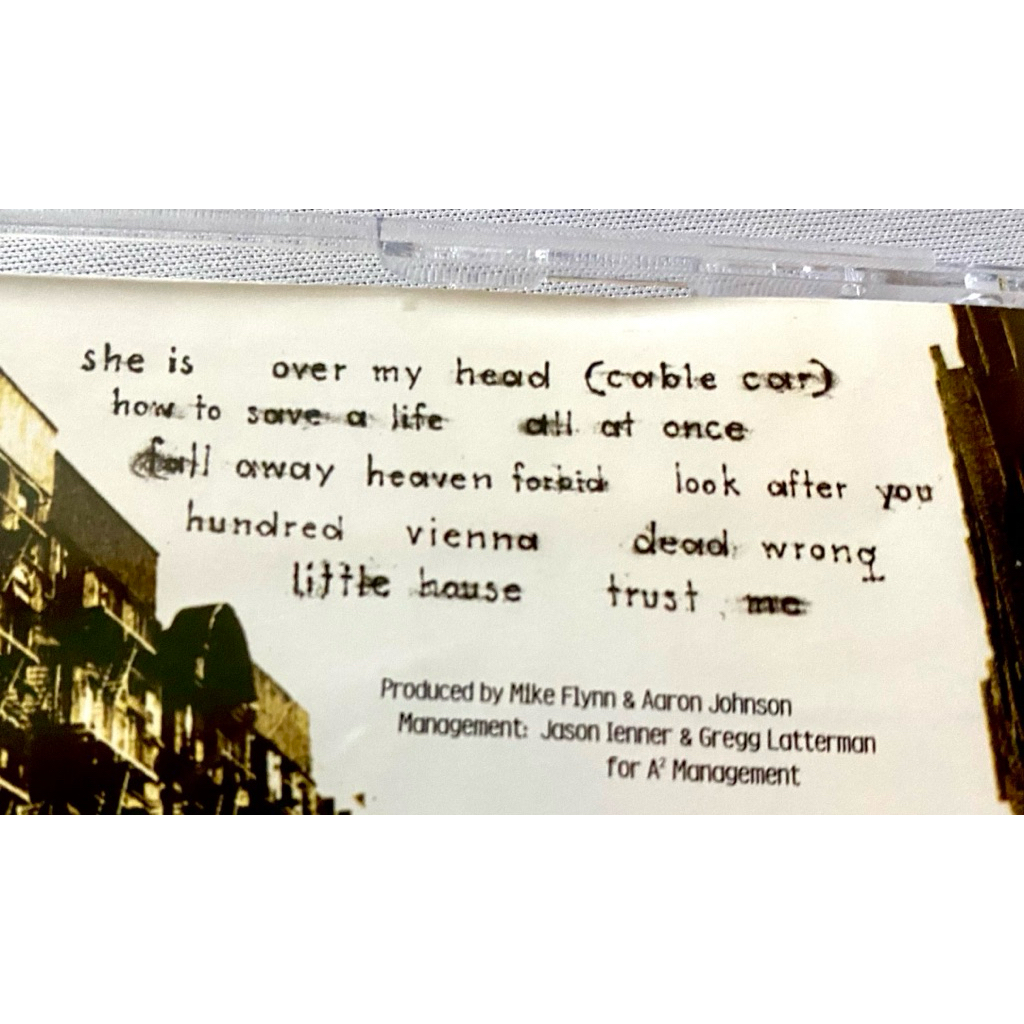 she is over my head (cable car)
how to save a life all at once
fall away heaven forbid look after you
hundred vienna dead wrong
little house trust me
Produced by Mike Flynn & Aaron Johnson
Management: Jason Ienner & Gregg Latterman
for A² Management